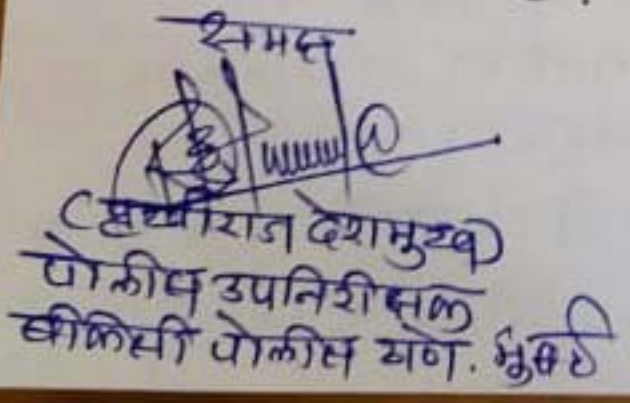 समक्ष
(पृथ्वीराज देशमुख)
पोलीस उपनिरीक्षक
बीकेसी पोलीस ठाणे. मुंबई